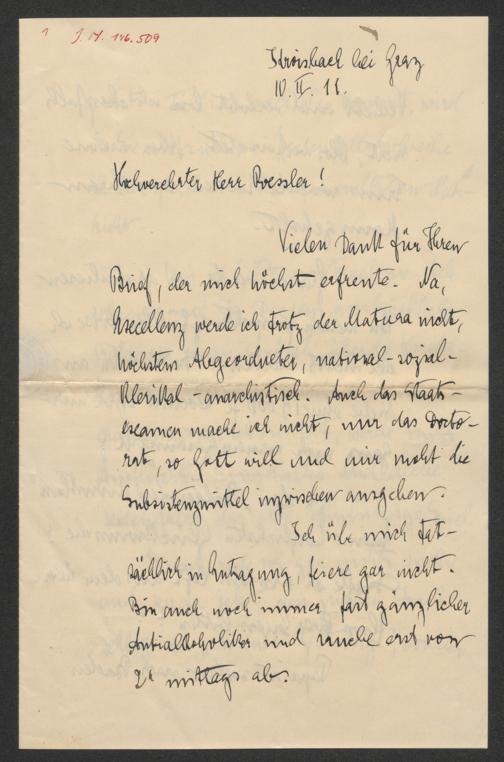 1 J. N. 146.509
Kroisbach bei Graz
10. II. 18.
Hochverehrter Herr Roessler!
Vielen Dank für Ihren
Brief, der mich höchst erfreute. Na,
Excellenz werde ich trotz der Matura nicht,
höchstens Abgeordneter, national-sozial-
klerikal-anarchistisch. Auch das Staats-
examen mache ich nicht, nur das Docto-
rat, so Gott will und mir nicht die
Subsistenzmittel inzwischen ausgehen.
Ich übe mich tat-
sächlich in Entsagung, feiere gar nicht.
Bin auch noch immer fast gänzlicher
Antialkoholiker und rauche erst von
2h mittags ab.